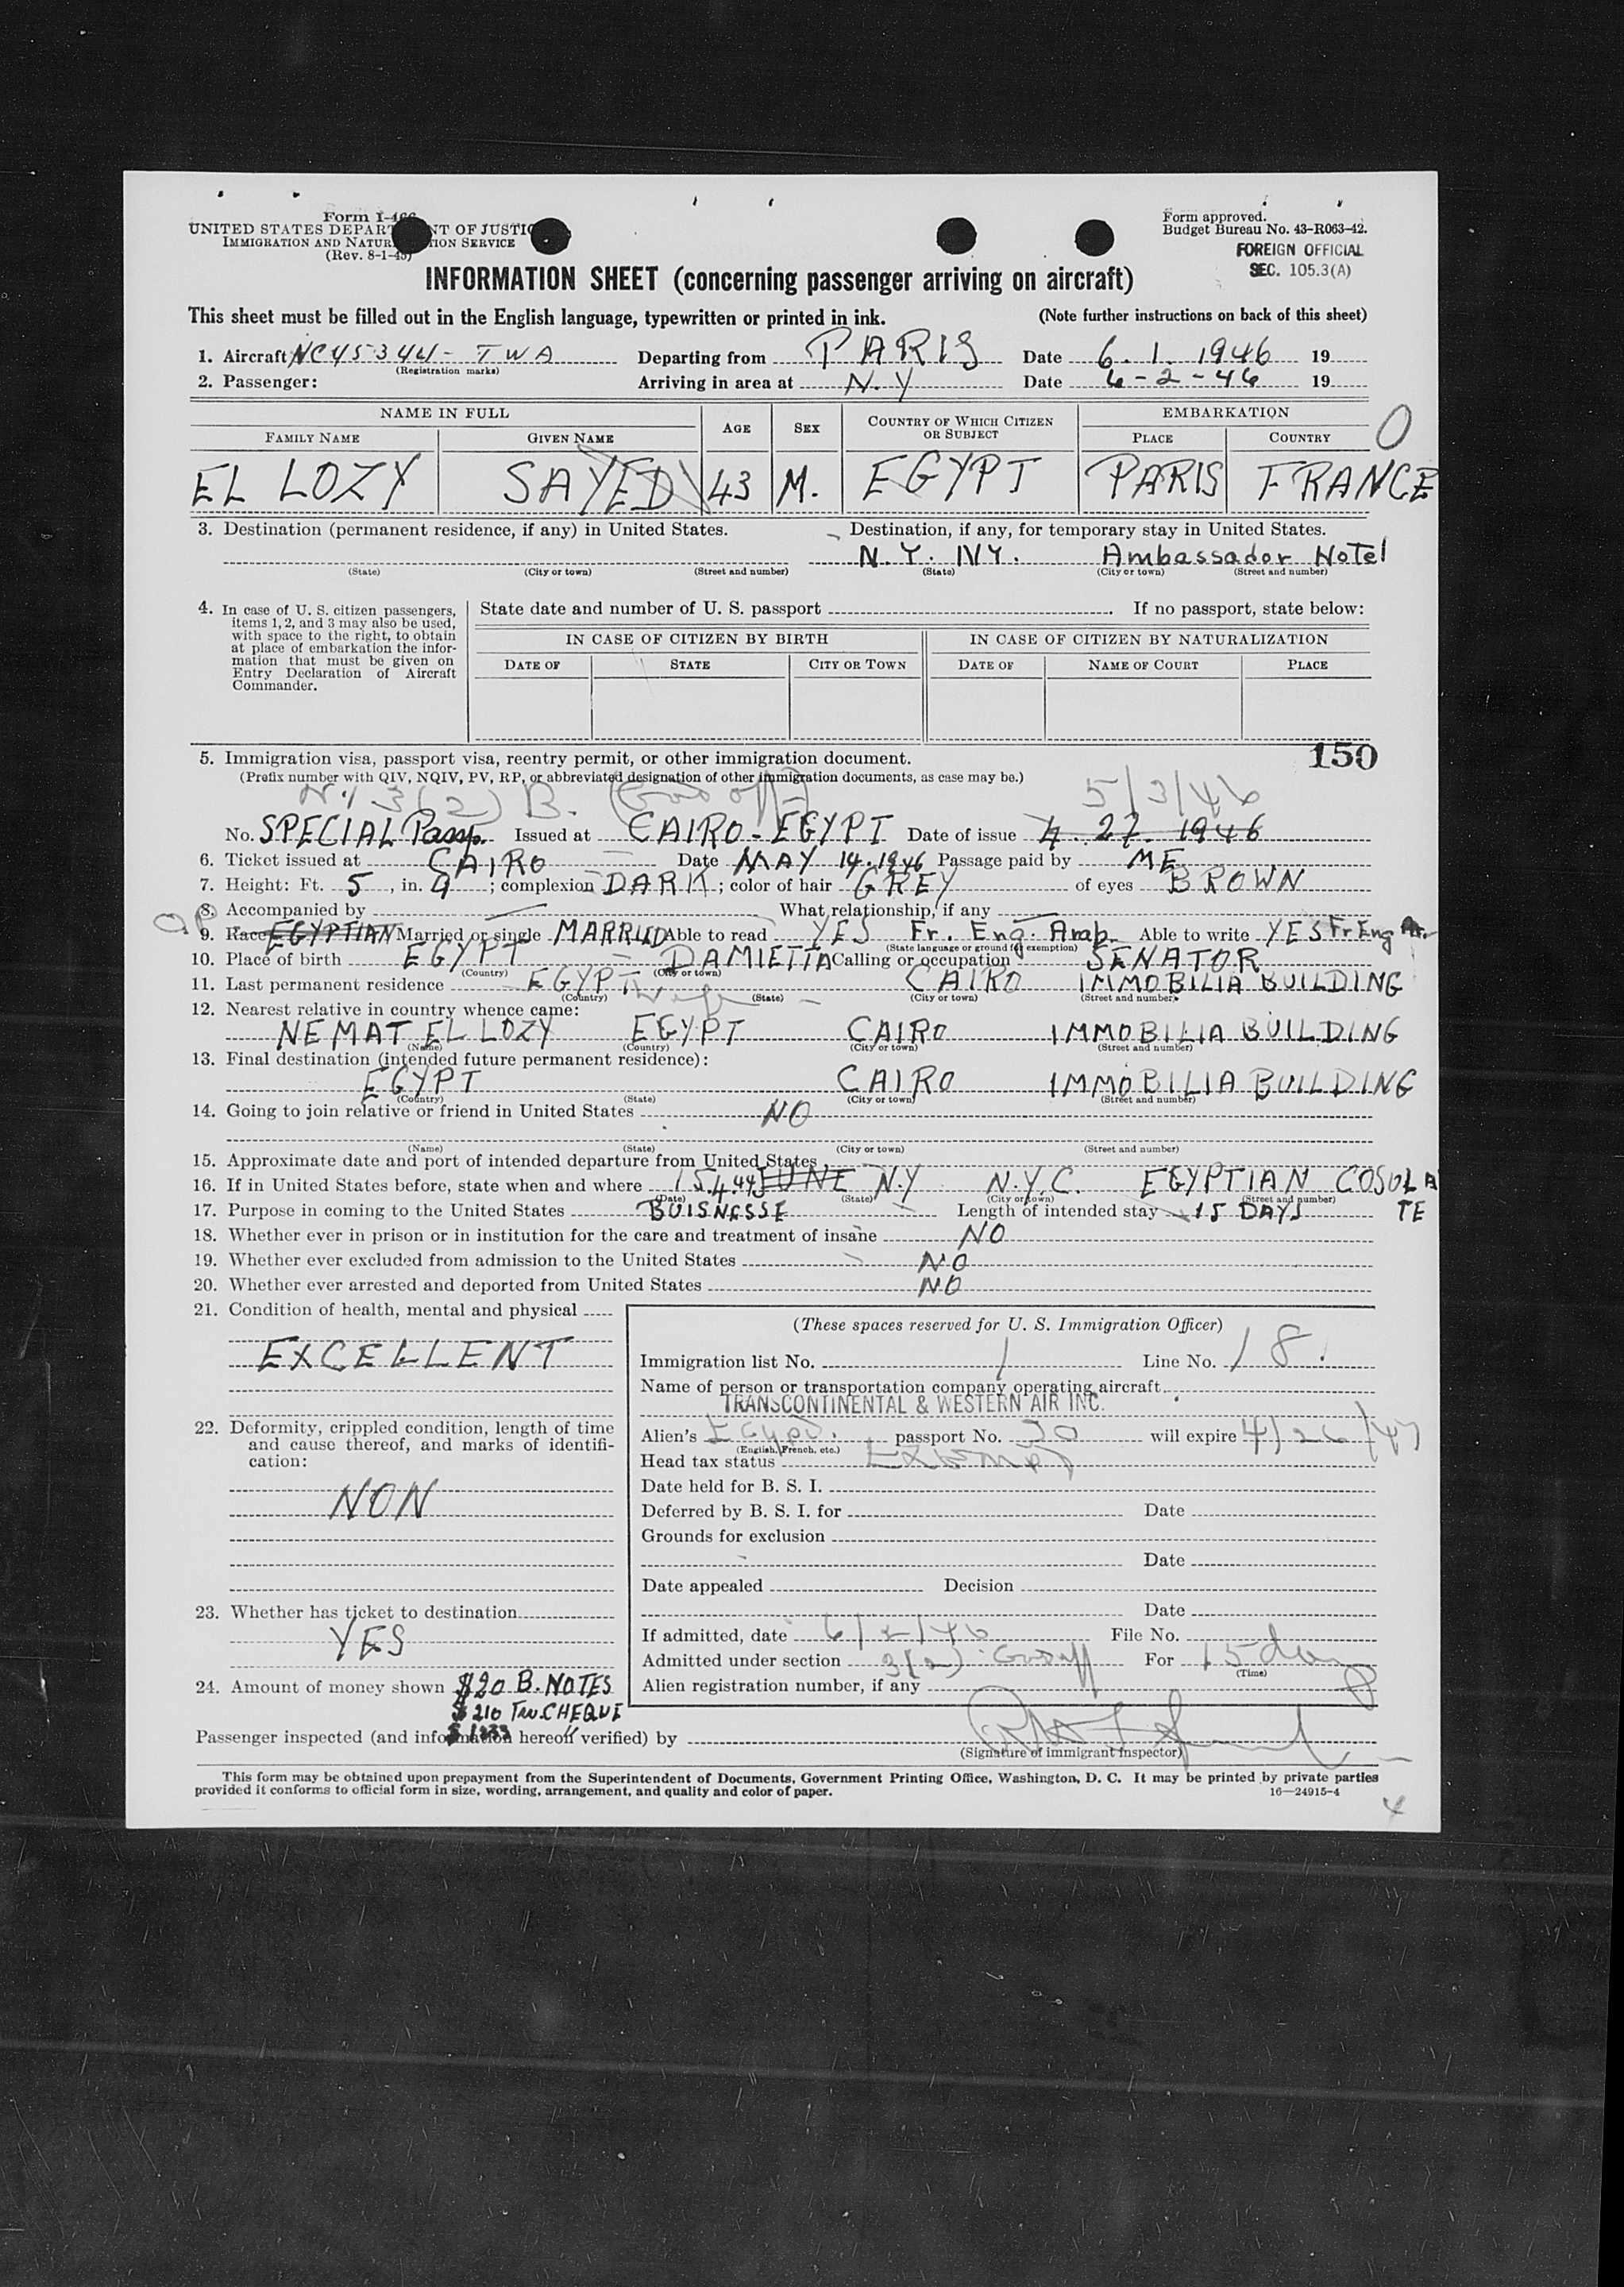 Form I-466
UNITED STATES DEPARTMENT OF JUSTICE
IMMIGRATION AND NATURALIZATION SERVICE
(Rev. 8-1-45)
Form approved.
Budget Bureau No. 43-R063-42.
FOREIGN OFFICIAL
SEC. 105.3(A)
INFORMATION SHEET (concerning passenger arriving on aircraft)
This sheet must be filled out in the English language, typewritten or printed in ink. (Note further instructions on back of this sheet)
1. Aircraft NC45344 - TWA Departing from PARIS Date 6.1.1946 19
(Registration marks)
2. Passenger: Arriving in area at N.Y Date 6-2-46 19
NAME IN FULL AGE SEX COUNTRY OF WHICH CITIZEN OR SUBJECT EMBARKATION
FAMILY NAME GIVEN NAME PLACE COUNTRY
O
EL LOZY SAYED 43 M. EGYPT PARIS FRANCE
3. Destination (permanent residence, if any) in United States. Destination, if any, for temporary stay in United States.
N.Y. NY. Ambassador Hotel
(State) (City or town) (Street and number) (State) (City or town) (Street and number)
4. In case of U. S. citizen passengers, items 1, 2, and 3 may also be used, with space to the right, to obtain at place of embarkation the information that must be given on Entry Declaration of Aircraft Commander.
State date and number of U. S. passport If no passport, state below:
IN CASE OF CITIZEN BY BIRTH IN CASE OF CITIZEN BY NATURALIZATION
DATE OF STATE CITY OR TOWN DATE OF NAME OF COURT PLACE
150
5. Immigration visa, passport visa, reentry permit, or other immigration document.
(Prefix number with QIV, NQIV, PV, RP, or abbreviated designation of other immigration documents, as case may be.)
3(2) B. 5/3/46
No. SPECIAL Passp. Issued at CAIRO - EGYPT Date of issue 4. 27. 1946
6. Ticket issued at CAIRO Date MAY 14.1946 Passage paid by ME
7. Height: Ft. 5, in. 9; complexion DARK; color of hair GREY of eyes BROWN
8. Accompanied by What relationship, if any
9. Race EGYPTIAN Married or single MARRIED Able to read YES Fr. Eng. Arap. Able to write YES Fr Eng Ar.
(State language or ground for exemption)
10. Place of birth EGYPT DAMIETTA Calling or occupation SENATOR
(Country) (City or town)
11. Last permanent residence EGYPT CAIRO IMMOBILIA BUILDING
(Country) (State) (City or town) (Street and number)
12. Nearest relative in country whence came: Wife
NEMAT EL LOZY EGYPT CAIRO IMMOBILIA BUILDING
(Name) (Country) (City or town) (Street and number)
13. Final destination (intended future permanent residence):
EGYPT CAIRO IMMOBILIA BUILDING
(Country) (State) (City or town) (Street and number)
14. Going to join relative or friend in United States NO
(Name) (State) (City or town) (Street and number)
15. Approximate date and port of intended departure from United States
16. If in United States before, state when and where 15.4.44 JUNE N.Y N.Y.C. EGYPTIAN COSULATE
(Date) (State) (City or town) (Street and number)
17. Purpose in coming to the United States BUISNESSE Length of intended stay 15 DAYS
18. Whether ever in prison or in institution for the care and treatment of insane NO
19. Whether ever excluded from admission to the United States NO
20. Whether ever arrested and deported from United States NO
21. Condition of health, mental and physical
EXCELLENT
22. Deformity, crippled condition, length of time and cause thereof, and marks of identification:
NON
23. Whether has ticket to destination
YES
24. Amount of money shown $20 B. NOTES
$210 Trv. CHEQUE
$ 1233
(These spaces reserved for U. S. Immigration Officer)
Immigration list No. 1 Line No. 18.
Name of person or transportation company operating aircraft
TRANSCONTINENTAL & WESTERN AIR INC.
Alien's Egypt. passport No. 30 will expire 4/26/47
(English, French, etc.)
Head tax status Exempt
Date held for B. S. I.
Deferred by B. S. I. for Date
Grounds for exclusion
Date
Date appealed Decision
Date
If admitted, date 6/2/46 File No.
Admitted under section 3(2) Gov off For 15 days
(Time)
Alien registration number, if any
Passenger inspected (and information hereon verified) by
(Signature of immigrant inspector)
This form may be obtained upon prepayment from the Superintendent of Documents, Government Printing Office, Washington, D. C. It may be printed by private parties
provided it conforms to official form in size, wording, arrangement, and quality and color of paper. 16—24915-4